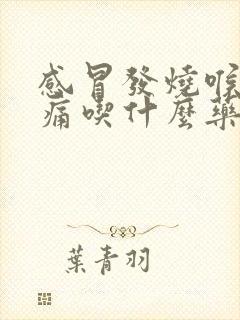 感冒發燒喉
痛喫什麼藥
葉青羽